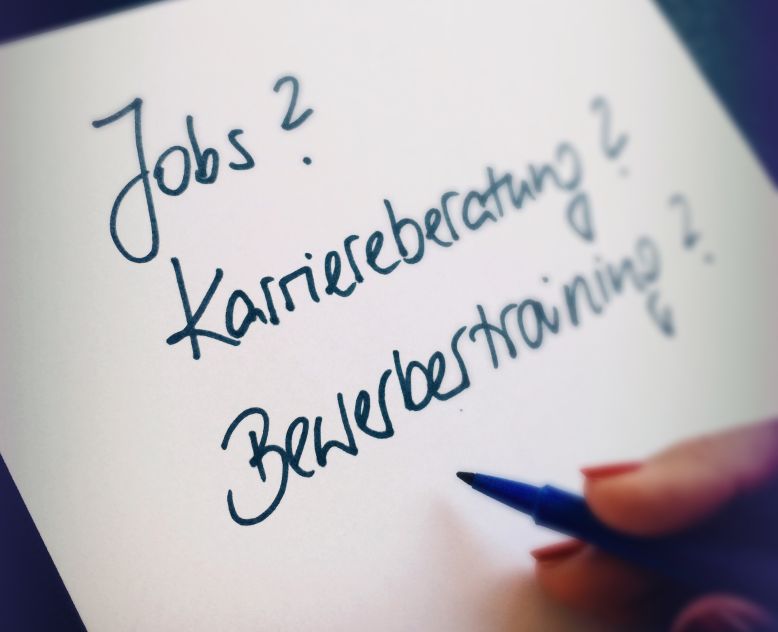 Jobs?
Karriereberatung?
Bewerbertraining?